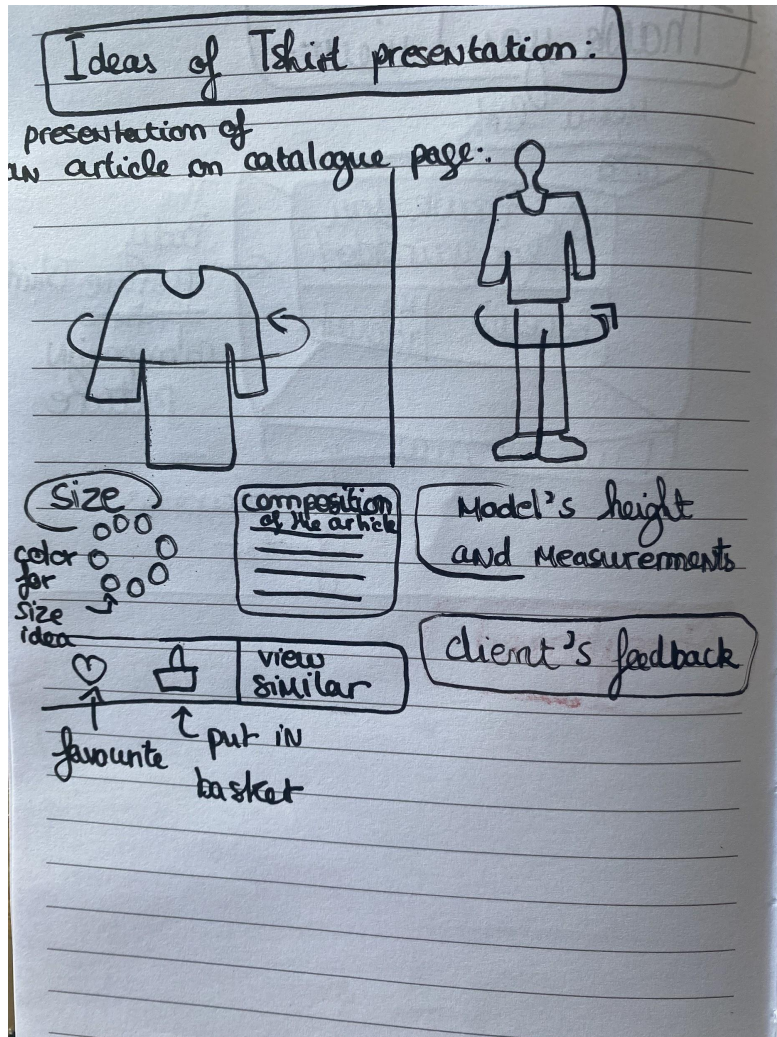 Ideas of Tshirt presentation:
presentation of
an article on catalogue page:
size
color
for
size
idea
composition
of the article
Model's height
and measurements
client's feedback
view
similar
favourite
put in
basket